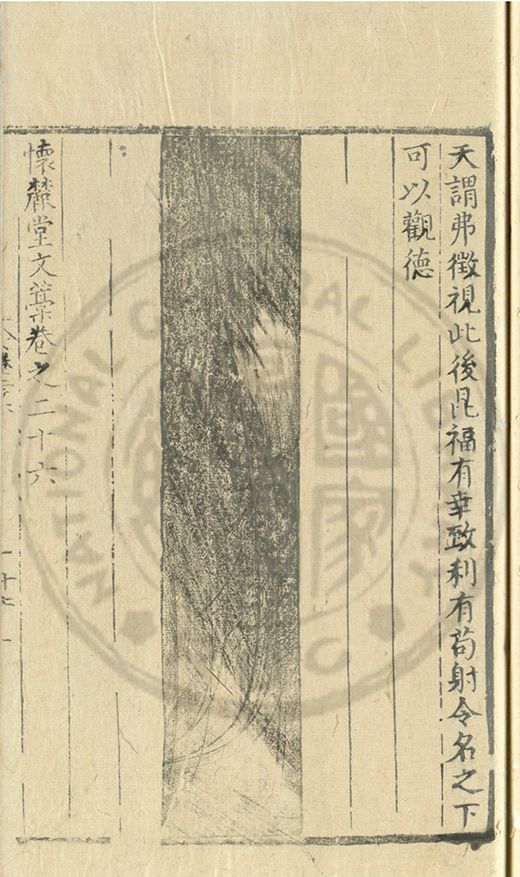 天謂弗徵視此後昆福有幸致利有苟射令名之下
可以觀德
懷麓堂文藁卷之二十六
NATIONAL CENTRAL LIBRARY